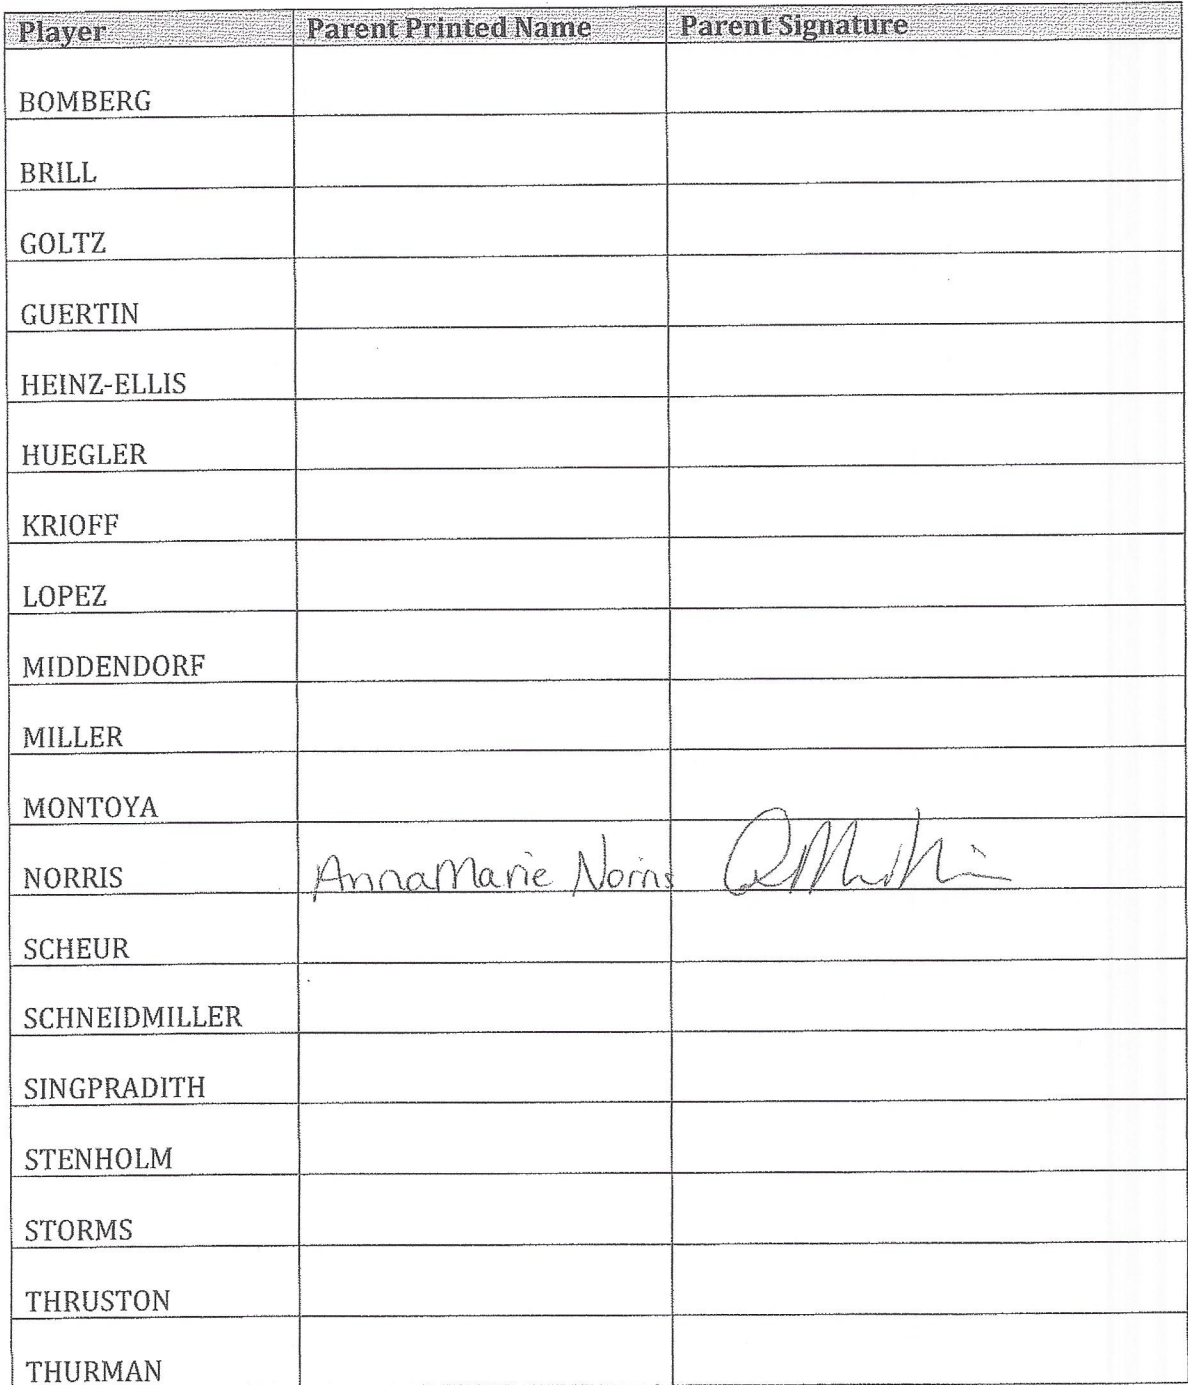 Player Parent Printed Name Parent Signature
BOMBERG
BRILL
GOLTZ
GUERTIN
HEINZ-ELLIS
HUEGLER
KRIOFF
LOPEZ
MIDDENDORF
MILLER
MONTOYA
NORRIS AnnaMarie Norris
SCHEUR
SCHNEIDMILLER
SINGPRADITH
STENHOLM
STORMS
THRUSTON
THURMAN